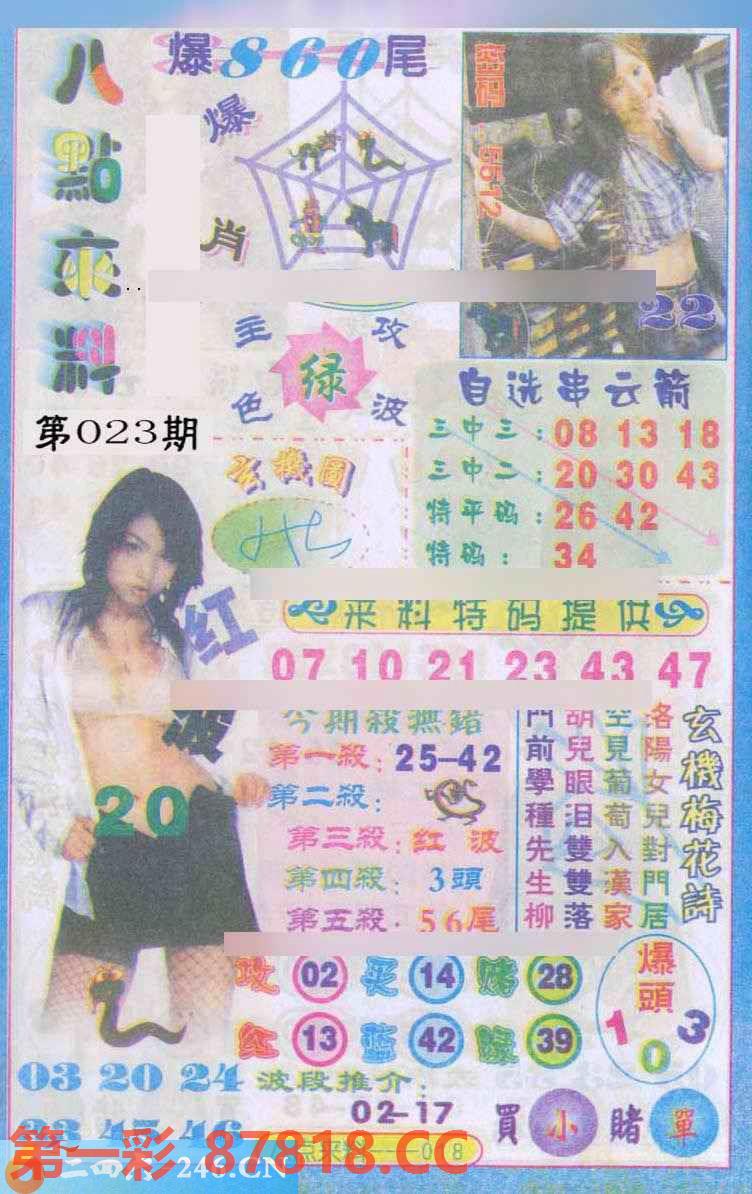 八點來料
爆860尾
爆肖
密码:5512
22
主攻
绿
色波
第023期
自选串云箭
三中三:08 13 18
三中二:20 30 43
特平码:26 42
特码:34
玄機圖
红波
20
来料特码提供
07 10 21 23 43 47
今期殺無錯
第一殺:25-42
第二殺:
第三殺:红波
第四殺:3頭
第五殺:56尾
玄機梅花詩
洛陽女兒對門居
空見葡萄入漢家
胡兒眼泪雙雙落
門前學種先生柳
攻 02 买 14 赌 28
红 13 蓝 42 绿 39
爆頭
1 0 3
03 20 24
波段推介:
02-17
買小賭單
第一彩 87818.CC
246.CN